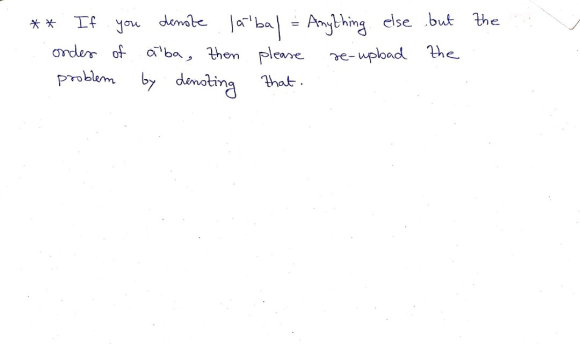 ** If you denote |a⁻¹ba| = Anything else but the
order of a⁻¹ba, then please re-upload the
problem by denoting that.